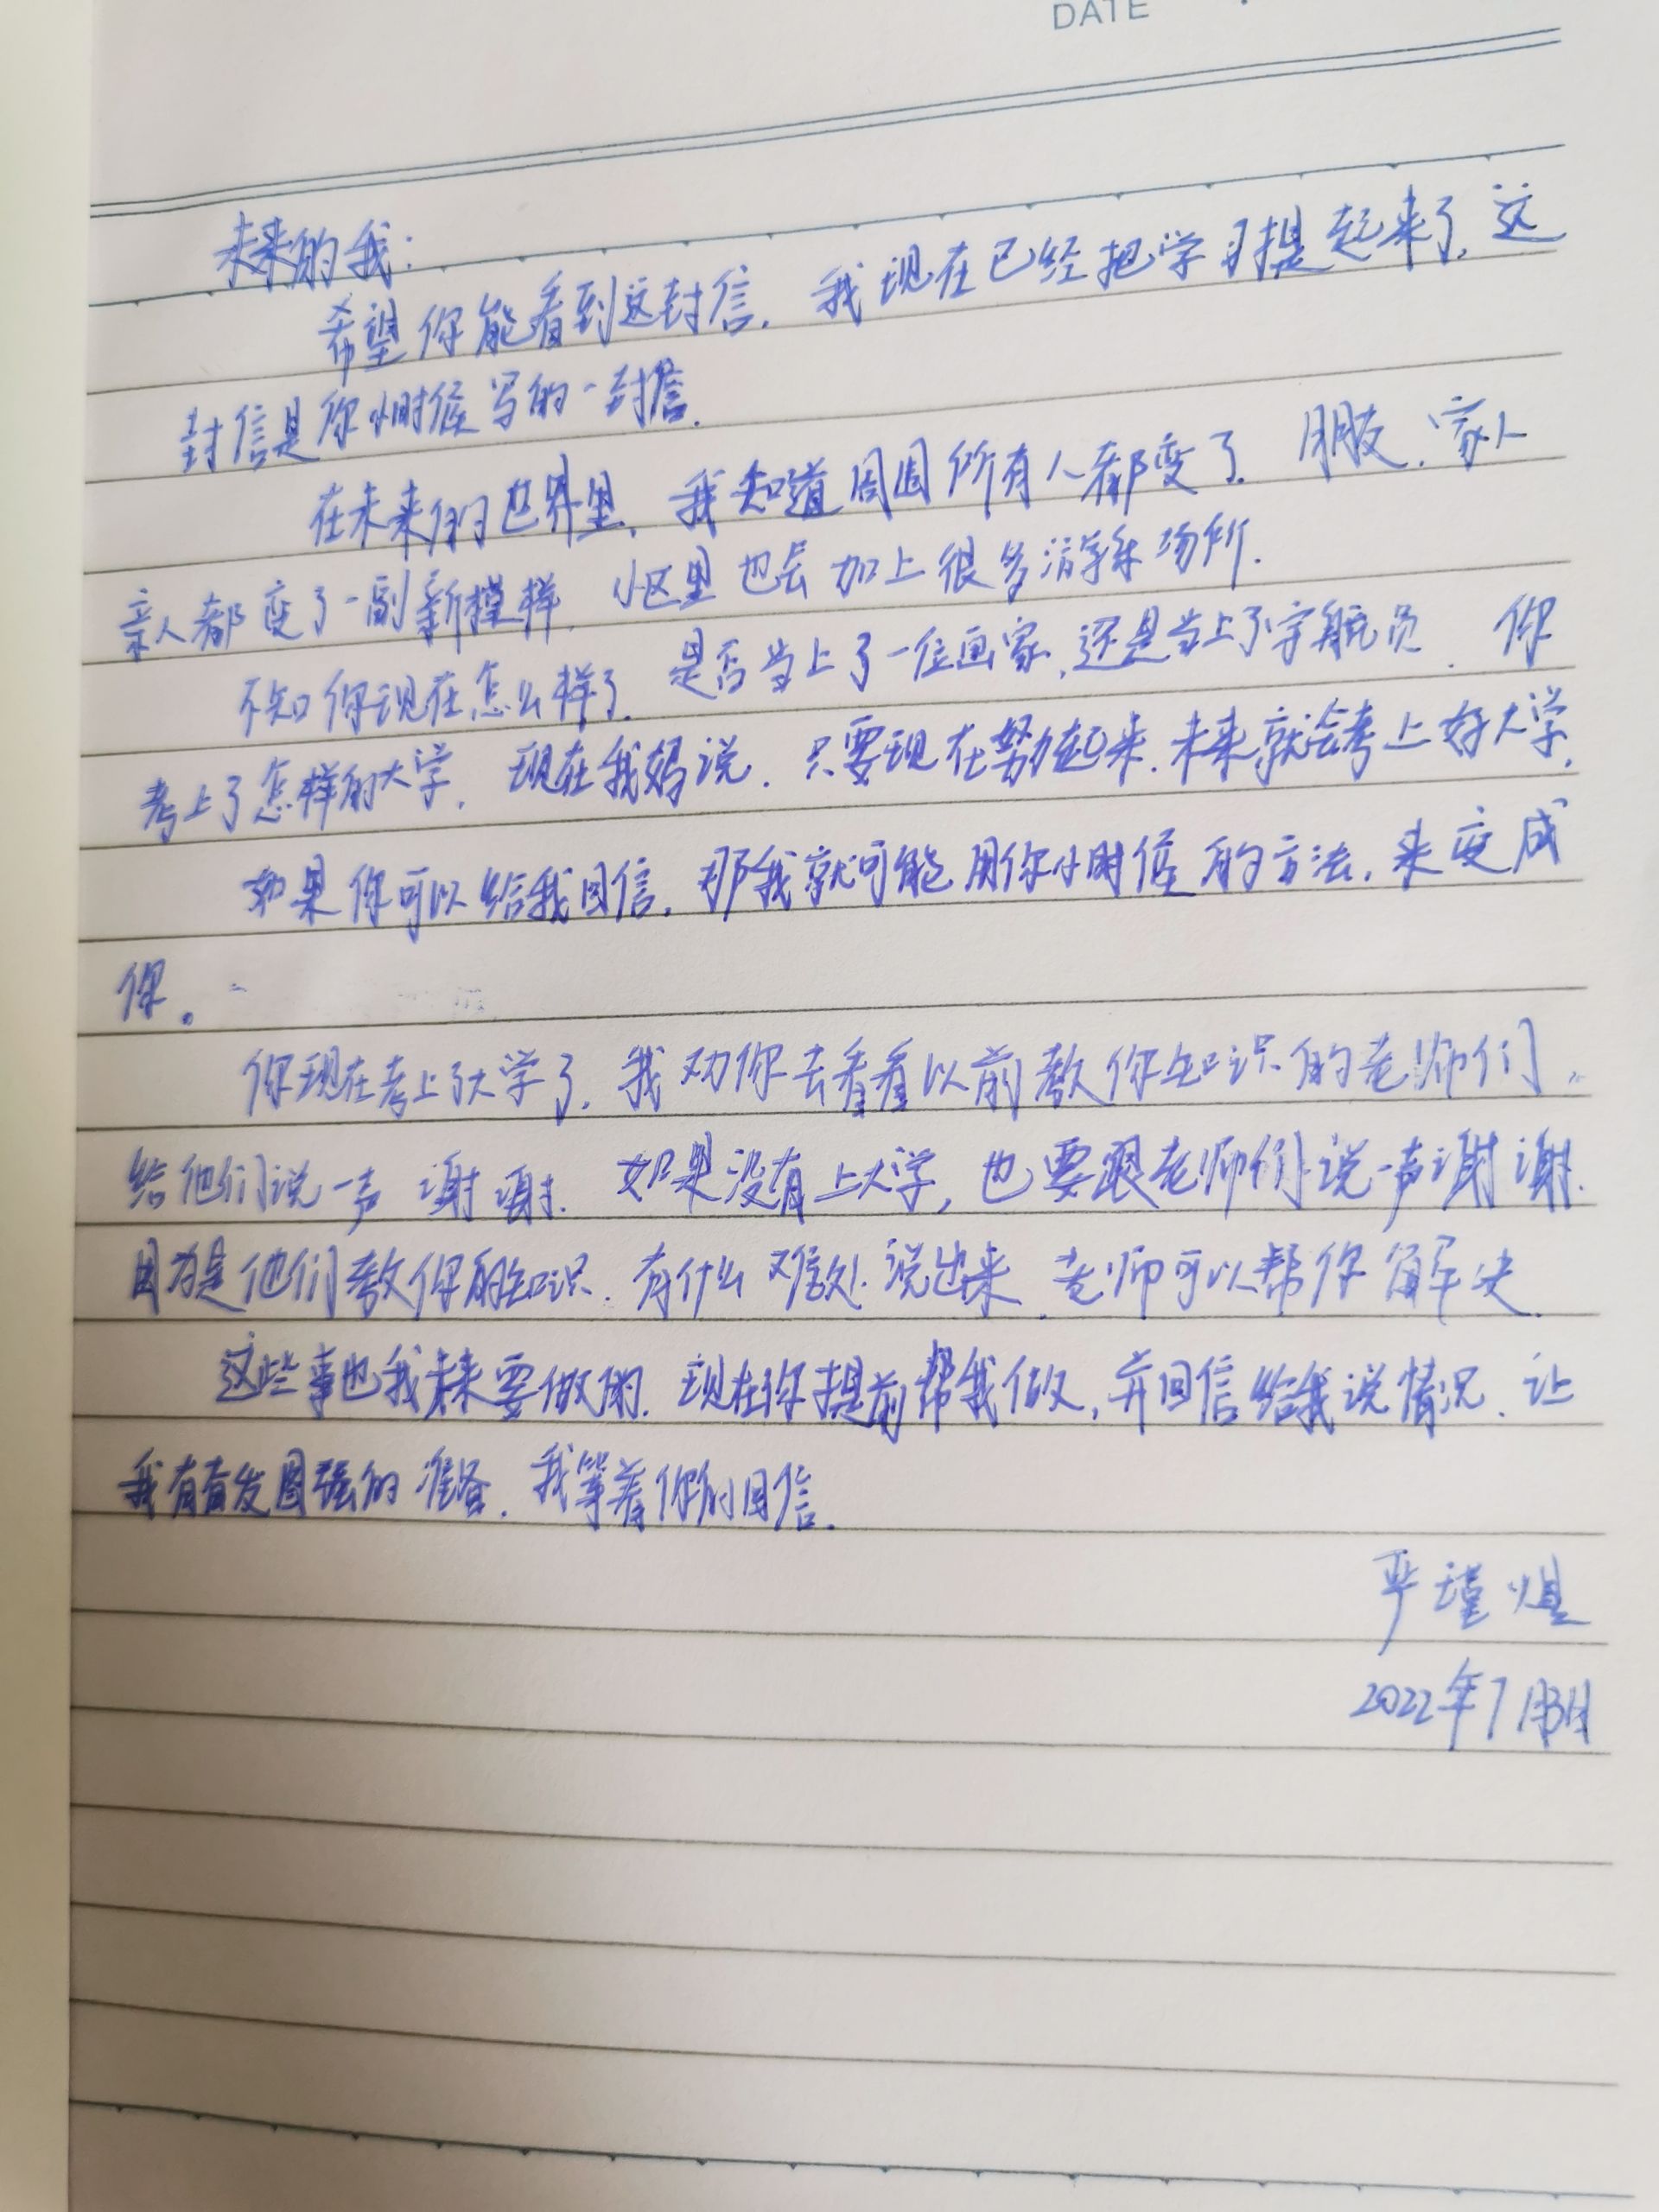 DATE
未来的我：
希望你能看到这封信，我现在已经把学习提起来了，这
封信是你小时候写的一封信。
在未来的世界里，我知道周围所有人都变了，朋友、家人
亲人都变了一副新模样，小区里也会加上很多游乐场所.
不知你现在怎么样了，是否当上了一位画家，还是当上了宇航员，你
考上了怎样的大学，现在我妈说，只要现在努力起来，未来就会考上好大学，
如果你可以给我回信，那我就可能用你小时候的方法，来变成
你。
你现在考上了大学了，我劝你去看看以前教你知识的老师们，
给他们说一声谢谢.如果没有上大学，也要跟老师们说一声谢谢.
因为是他们教你的知识.有什么难处说出来，老师可以帮你解决.
这些事也我未来要做的.现在你提前帮我做，并回信给我说情况，让
我有奋发图强的准备.我等着你的回信.
严瑾煜
2022年7月3日